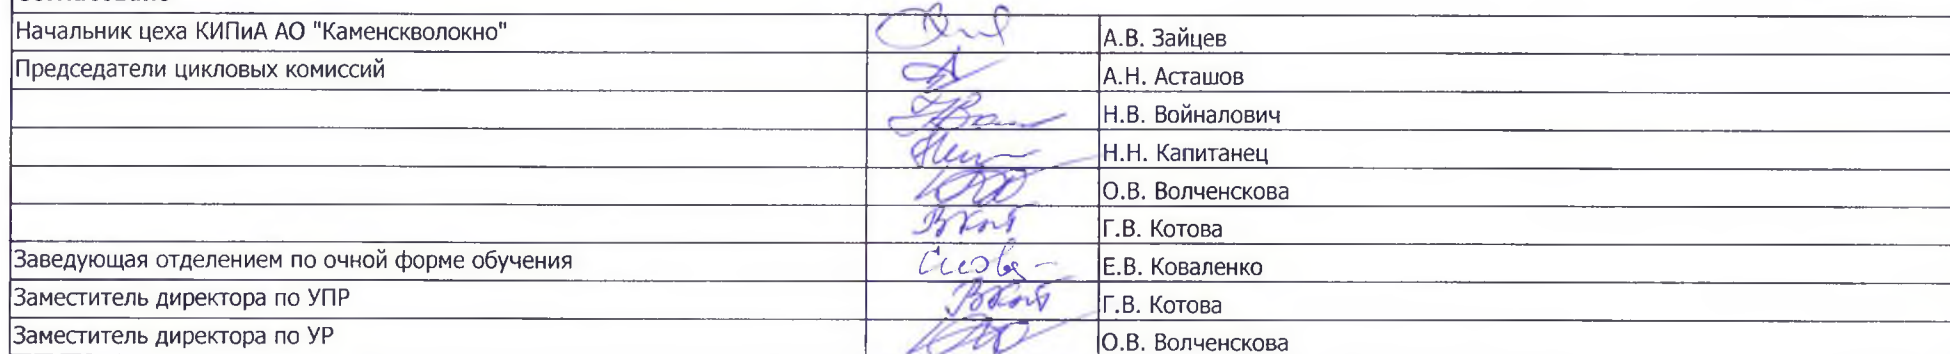 Начальник цеха КИПиА АО "Каменскволокно" А.В. Зайцев
Председатели цикловых комиссий А.Н. Асташов
Н.В. Войналович
Н.Н. Капитанец
О.В. Волченскова
Г.В. Котова
Заведующая отделением по очной форме обучения Е.В. Коваленко
Заместитель директора по УПР Г.В. Котова
Заместитель директора по УР О.В. Волченскова